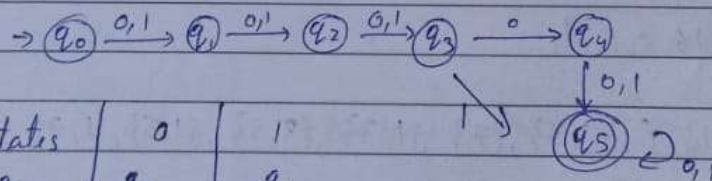 → q0 0,1 → q1 0,1 → q2 0,1 → q3 0 → q4
0,1
1
q5 0,
tates 0 1